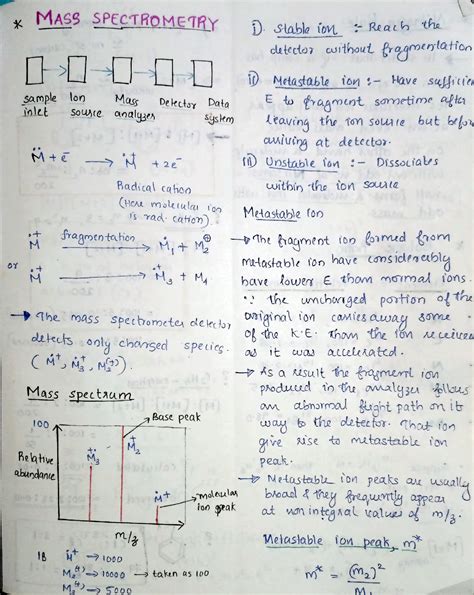 * MASS SPECTROMETRY
Sample inlet
Ion source
Mass analyzer
Detector
Data system
M̈ + ē ⟶ Ṁ⁺ + 2e⁻
Radical cation
(Here molecular ion
is rad. cation).
Ṁ⁺ fragmentation ⟶ Ṁ₁ + M₂⊕
or
Ṁ⁺ ⟶ Ṁ₃⁺ + M₄
→ The mass spectrometer detector
detects only charged species.
(Ṁ⁺, Ṁ₃⁺, M₂⁽⁺⁾).
Mass spectrum
100
Base peak
Relative
abundance
Ṁ₃⁺
M₂⁺
Ṁ⁺
molecular
ion peak
m/z
Ṁ⁺ → 1000
M₂⁽⁺⁾ → 10000 → taken as 100
Ṁ₃⁽⁺⁾ → 5000
i) Stable ion :- Reach the
detector without fragmentation
ii) Metastable ion :- Have sufficien
E to fragment sometime after
leaving the ion source but befo
arriving at detector.
iii) Unstable ion :- Dissociates
within the ion source
Metastable Ion
→ The fragment ion formed from
metastable ion have considerably
have lower E than normal ions.
∵ the uncharged portion of the
original ion carries away some
of the K.E. than the ion receive
as it was accelerated.
→ As a result the fragment ion
produced in the analyzer follows
an abnormal flight path on it
way to the detector. That ion
give rise to metastable ion
peak.
→ Metastable ion peaks are usually
broad & they frequently appear
at non integral values of m/z.
Metastable ion peak, m*
m* = (m₂)² / M₁